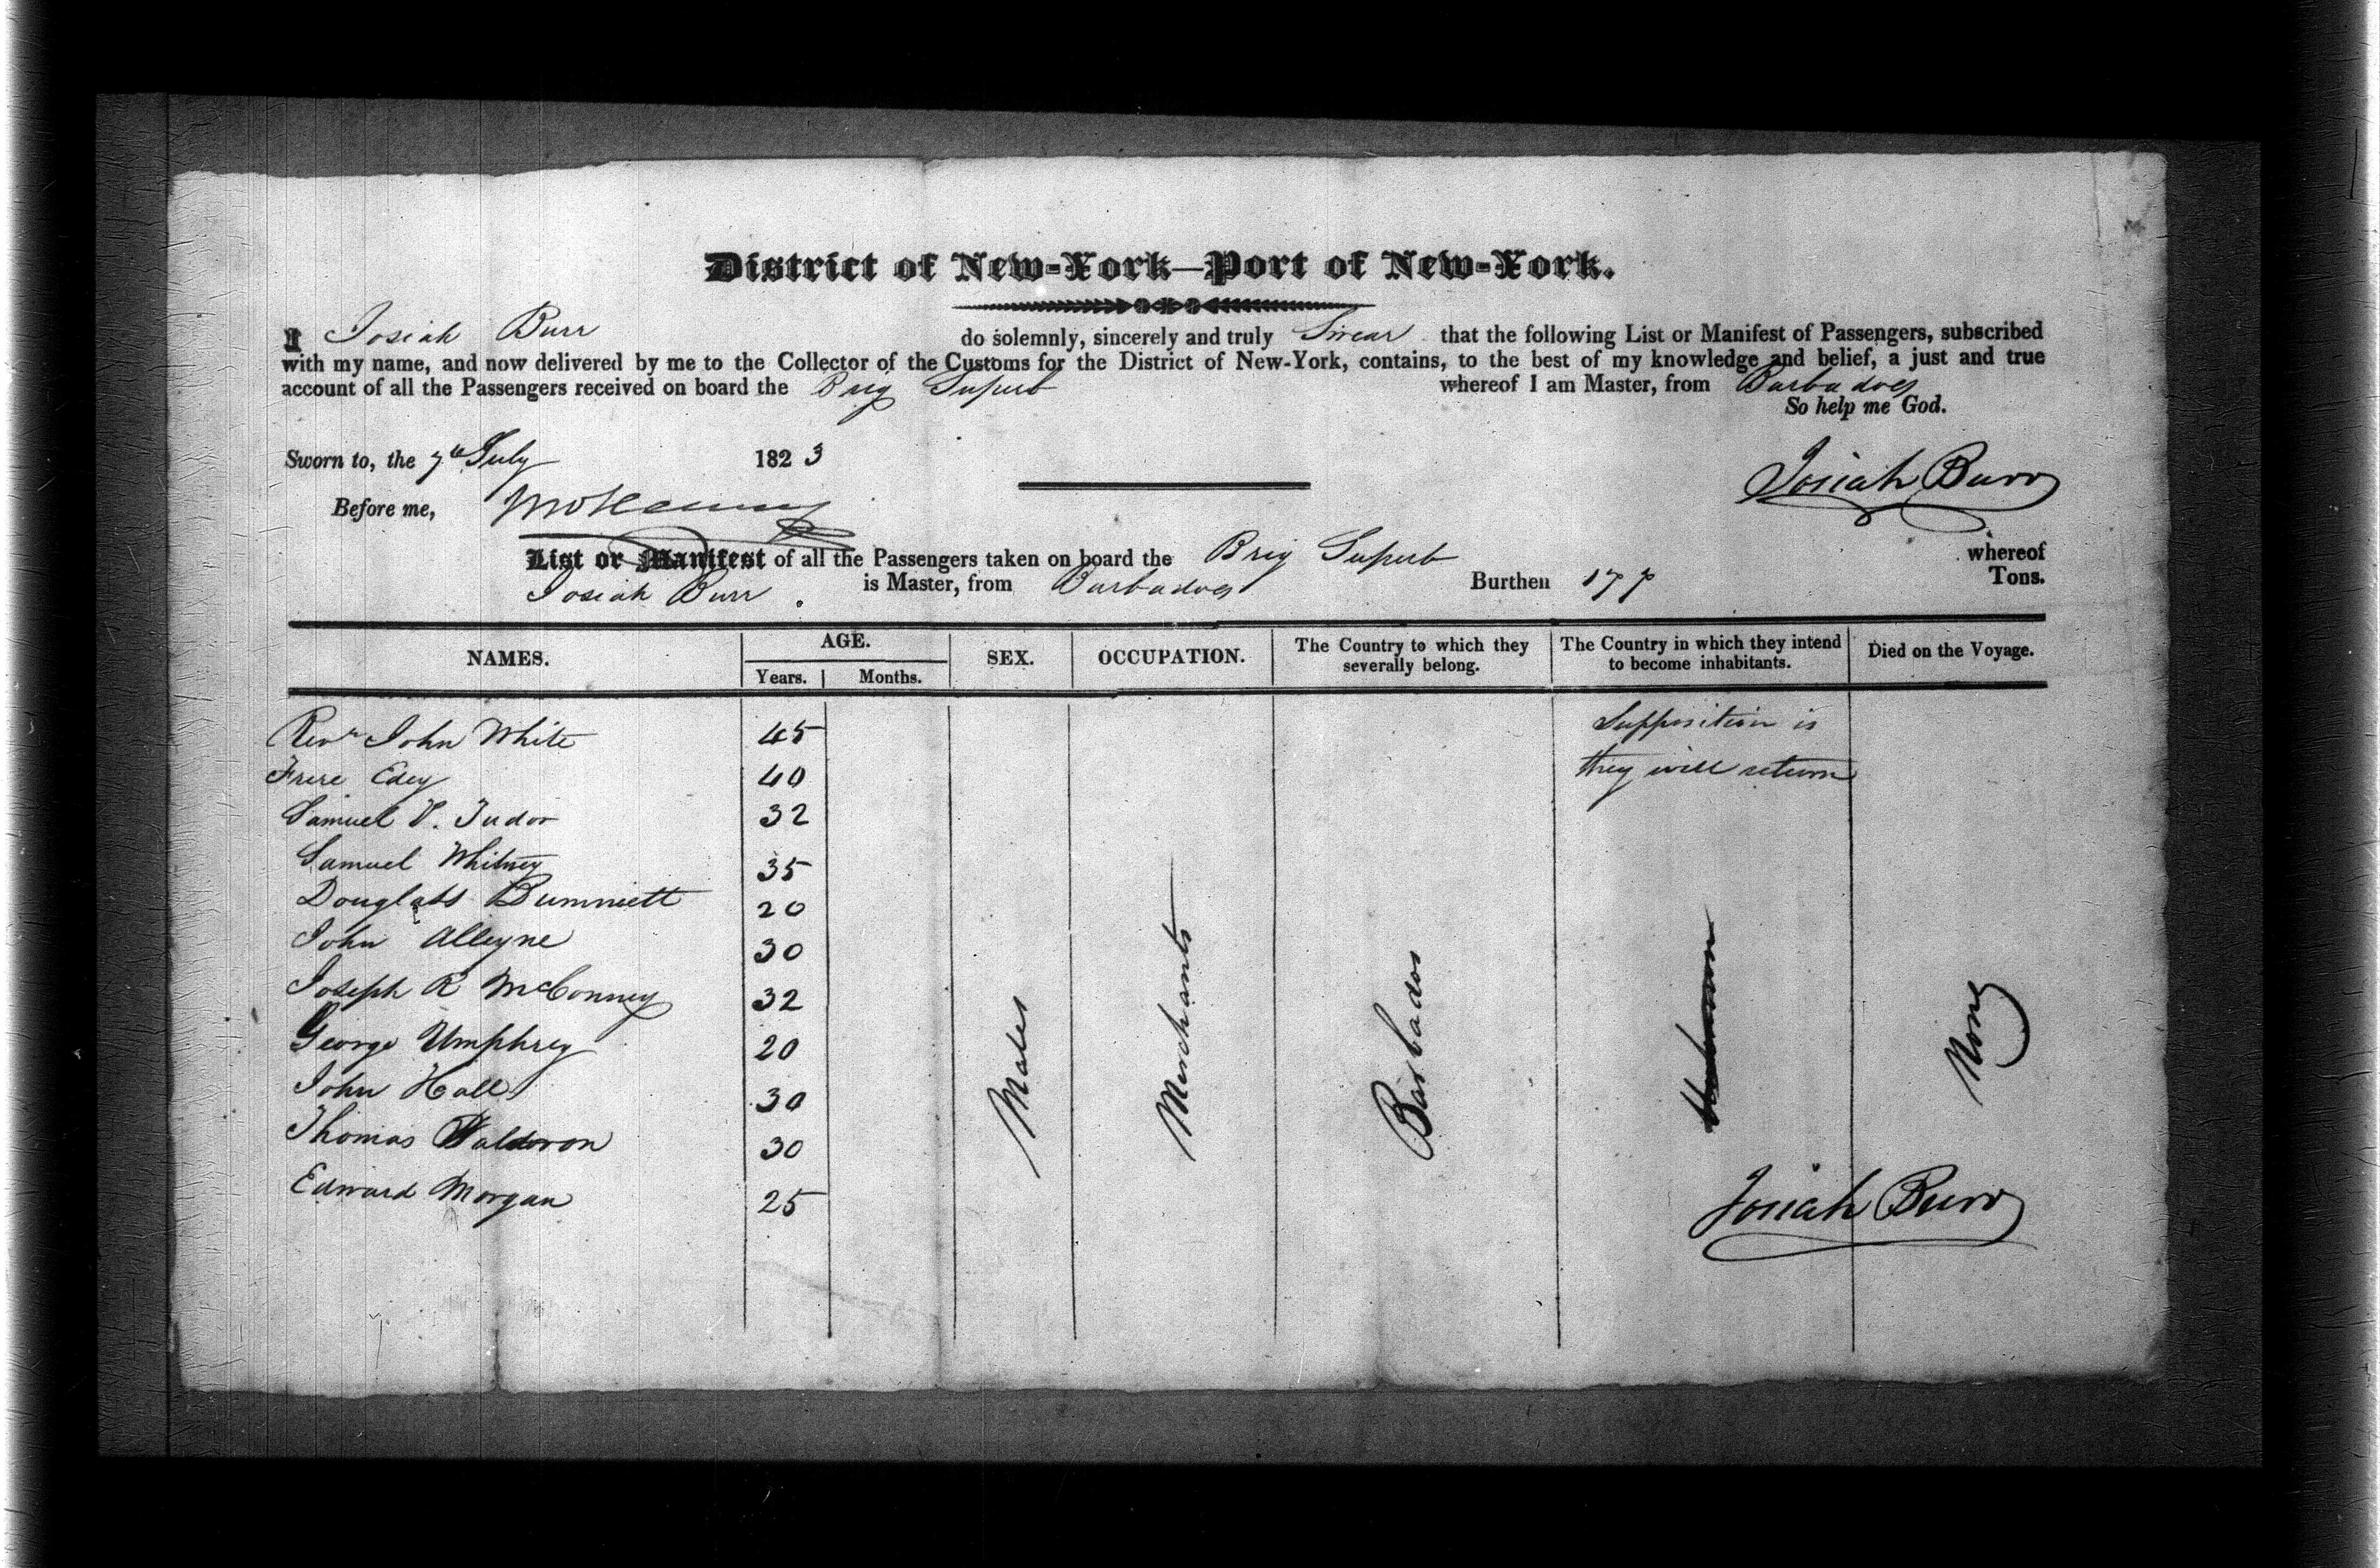 District of New-York—Port of New-York.
I Josiah Burr do solemnly, sincerely and truly Swear that the following List or Manifest of Passengers, subscribed
with my name, and now delivered by me to the Collector of the Customs for the District of New-York, contains, to the best of my knowledge and belief, a just and true
account of all the Passengers received on board the Brig Superb whereof I am Master, from Barbadoes
So help me God.
Sworn to, the 7th July 1823
Josiah Burr
Before me,
List or Manifest of all the Passengers taken on board the Brig Superb whereof
Josiah Burr is Master, from Barbadoes Burthen 177 Tons.
NAMES. AGE. SEX. OCCUPATION. The Country to which they severally belong. The Country in which they intend to become inhabitants. Died on the Voyage.
Years. Months.
Revr John White 45 Supposition is
Frere Edey 40 they will return
Samuel P. Tudor 32
Samuel Whitney 35
Douglass 20
John Alleyne 30
Joseph R McConney 32
George Umphrey 20
John Hall 30
Thomas Waldron 30
Edward Morgan 25
Males
Merchants
Barbados
None
Josiah Burr